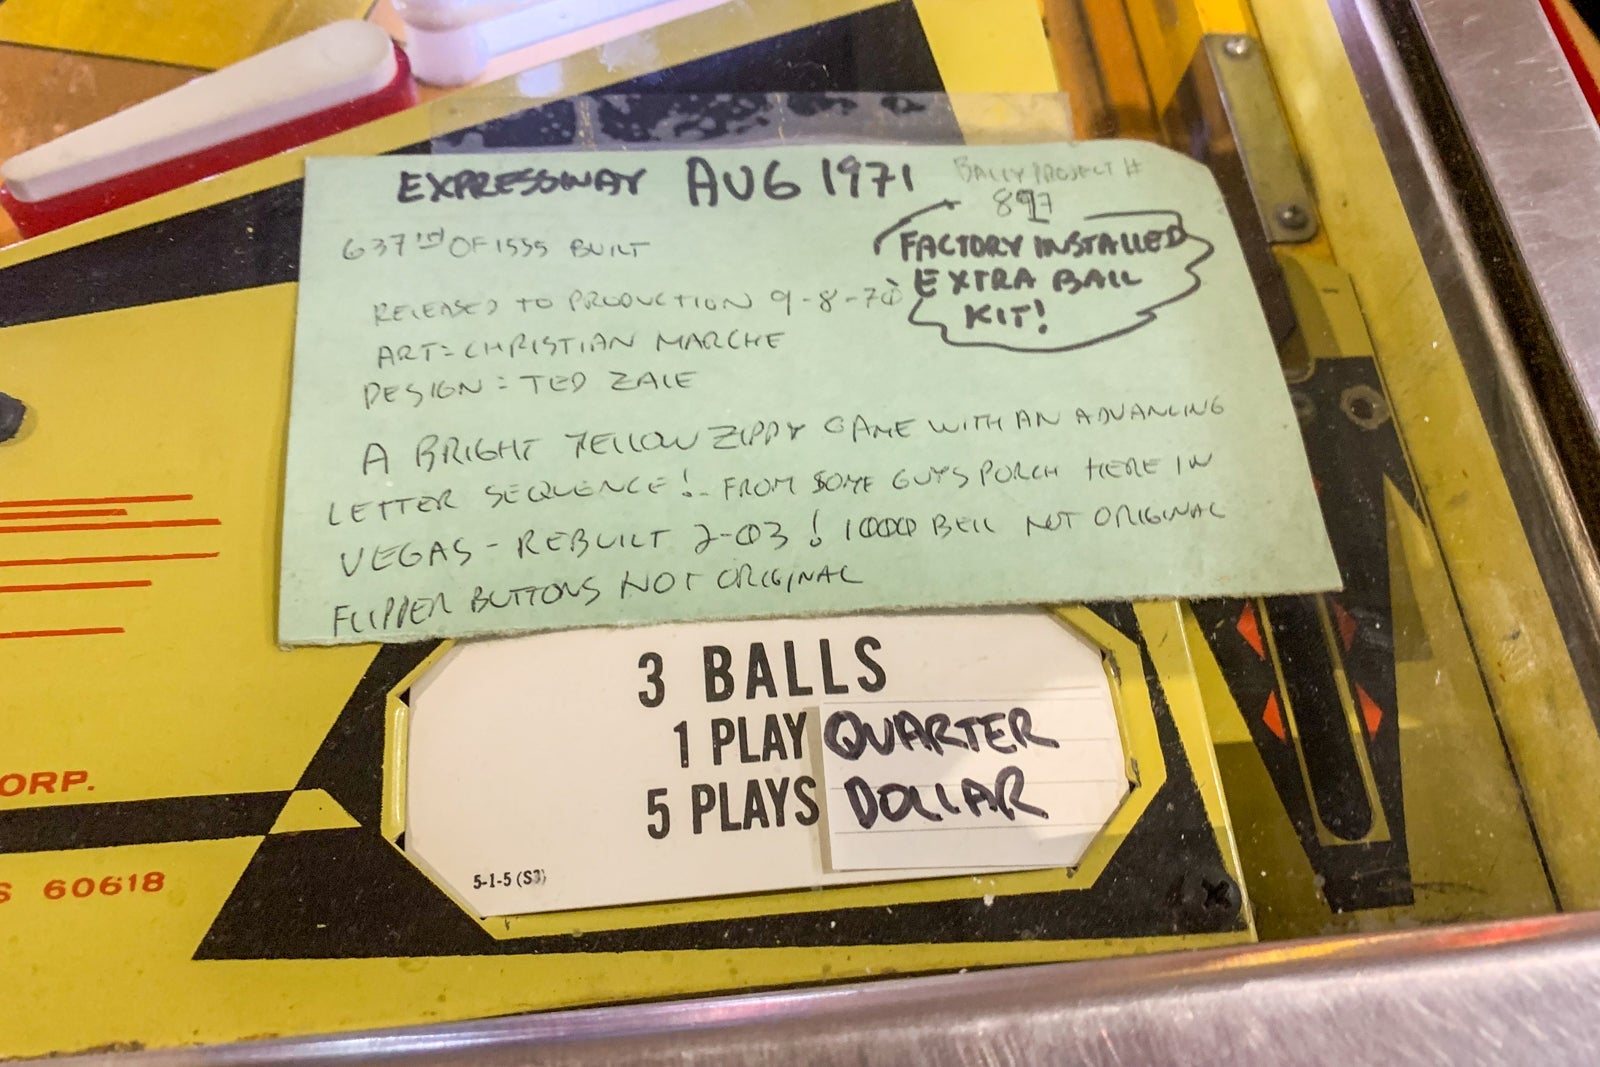 EXPRESSWAY AUG 1971
BALLY PROJECT #
897
637rd OF 1555 BUILT
FACTORY INSTALLED
EXTRA BALL
KIT!
RELEASED TO PRODUCTION 9-8-70
ART=CHRISTIAN MARCHE
DESIGN=TED ZALE
A BRIGHT YELLOW ZIPPY GAME WITH AN ADVANCING
LETTER SEQUENCE! FROM SOME GUYS PORCH HERE IN
VEGAS - REBUILT 2-03! 1000 BELL NOT ORIGINAL
FLIPPER BUTTONS NOT ORIGINAL
3 BALLS
1 PLAY QUARTER
5 PLAYS DOLLAR
5-1-5 (S3)
ORP.
S 60618